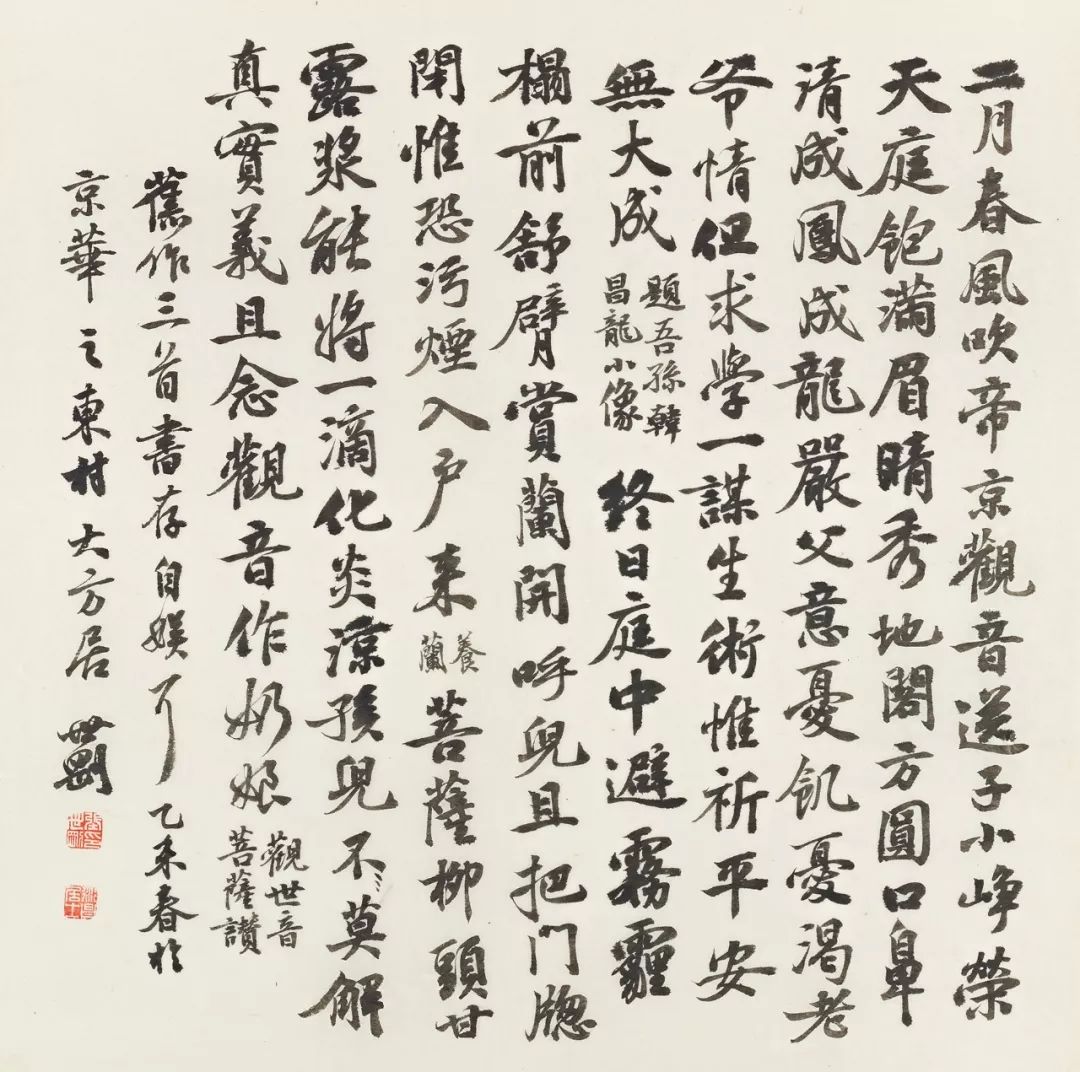 二月春風吹帝京觀音送子小崢榮
天庭飽滿眉晴秀地閣方圓口鼻
清成鳳成龍嚴父意憂飢憂渴老
爷情但求學一謀生術惟祈平安
無大成 題吾孫韓昌龍小像 終日庭中避霧霾
榻前舒臂賞蘭開呼兒且把門牕
閉惟恐污煙入户来 養蘭 菩薩柳頭甘
露漿能將一滴化炎涼孩兒不〻莫解
真實義且念觀音作奶娘 觀世音菩薩讃
舊作三首書存自娛耳 乙未春於
京華之東村大方居 世剛